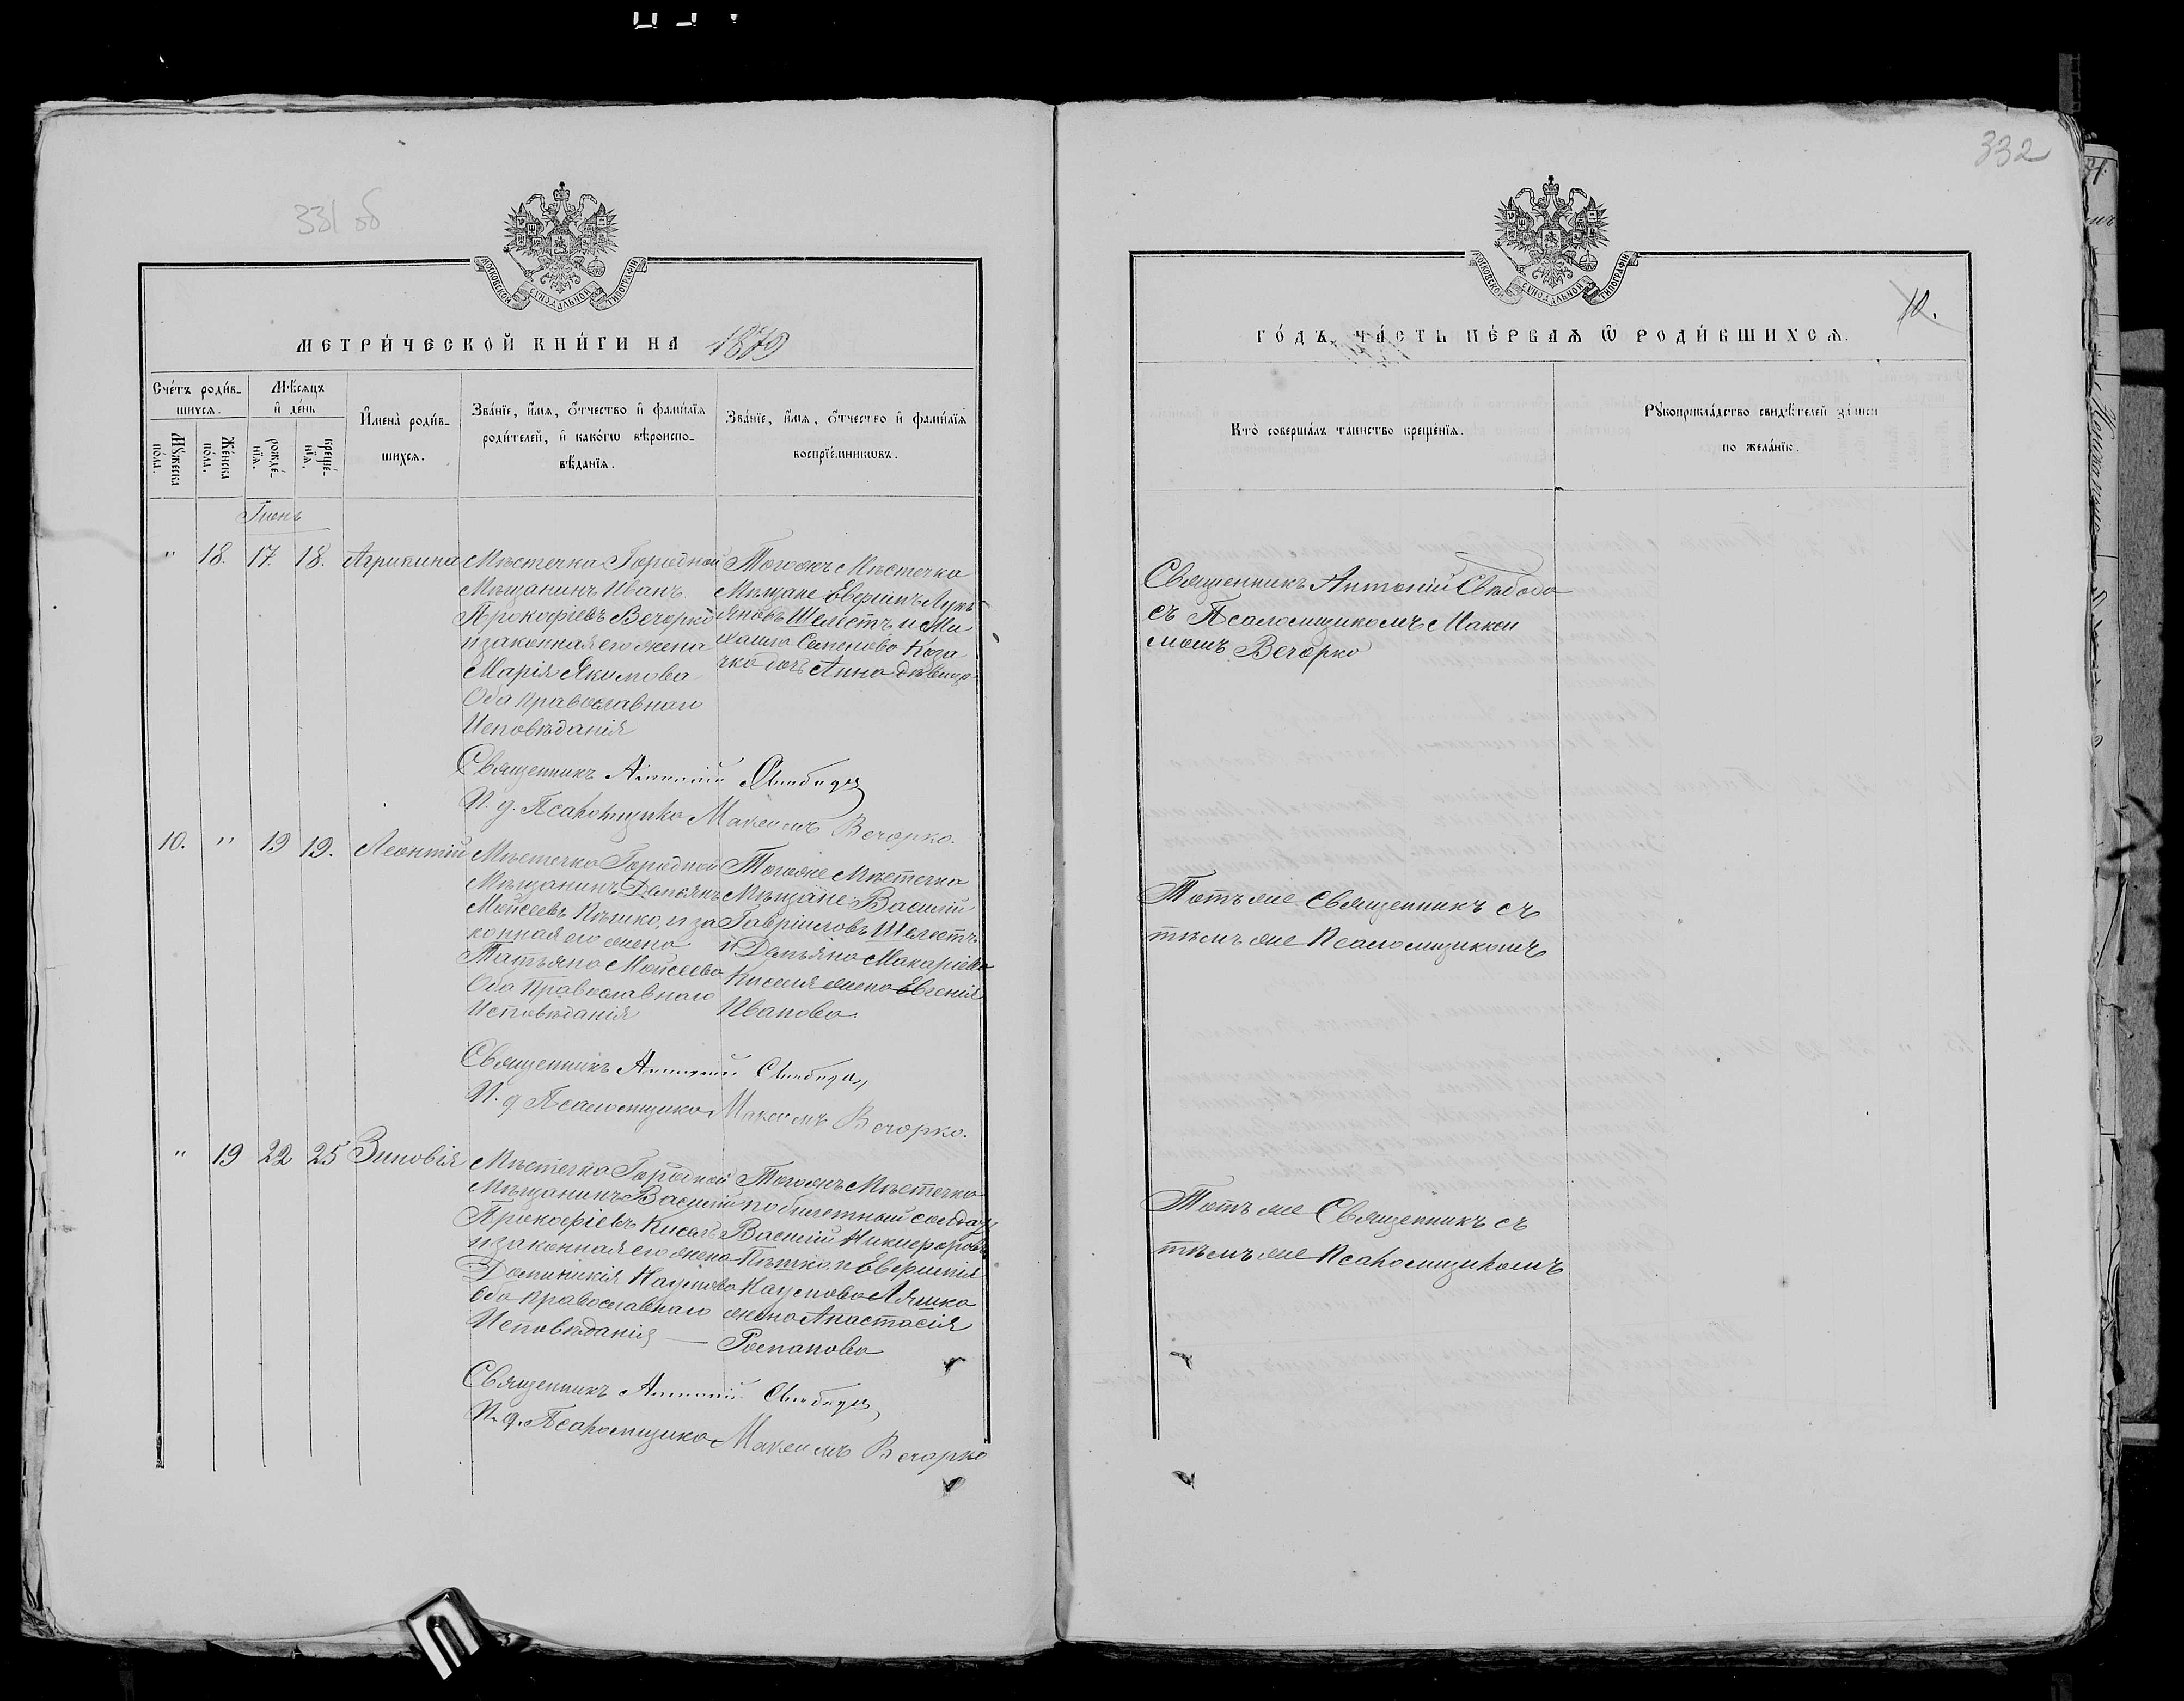 331 об
МОСКОВСКОЙ СѴНОДАЛЬНОЙ ТИПОГРАФІИ
МЕТРИ́ЧЕСКОЙ КНИ́ГИ НА 1879
Сче́тъ роди́в-
шихсѧ.
Мѣ́сѧцъ
и҆ де́нь
Мꙋ́жеска по́ла.
Же́нска по́ла.
рожде́-нїѧ.
креще́-нїѧ.
И҆мена̀ роди́в-
шихсѧ.
Зва́нїе, и҆́мѧ, ѻ҆́тчество и҆ фами́лїѧ
роди́телей, и҆ како́гѡ вѣроиспо-
вѣ́данїѧ.
Зва́нїе, и҆́мѧ, ѻ҆́тчество и҆ фами́лїѧ
воспрїе́мникѡвъ.
Іюнь
" 18. 17. 18. Агрипина
Мѣстечка Городной
Мѣщанинъ Иванъ
Прокофіевъ Вечорко
и законная его жена
Марія Якимова
Оба православнаго
Исповѣданія
Тогожъ Мѣстечка
Мѣщане Евфимъ Лукь
яновъ Шелестъ и Ми
хаила Семенова Коза
чка дочь Анна дѣвица
Священникъ Антоній Свобода
И. д. Псаломщика Максимъ Вечорко.
10. " 19 19. Леонтій
Мѣстечка Городной
Мѣщанинъ Демьянъ
Моисеевъ Пѣшко, и за
конная его жена
Татьяна Моисеева
Оба Православнаго
Исповѣданія
Тогоже Мѣстечка
Мѣщане Василій
Гавріиловъ Шелестъ
и Демьяна Макаріева
Кисиля жена Евгенія
Иванова.
Священникъ Антоній Свобода,
И. д Псаломщика Максимъ Вечорко.
" 19 22 25 Зиновія
Мѣстечка Городной
Мѣщанинъ Василій
Прокофіевъ Кисель
и законная его жена
Доминикія Наумова
Оба православнаго
Исповѣданія
Тогожъ Мѣстечка
побилетный солдатъ
Василій Никифоровъ
Пѣшко, и Евфимія
Наумова Ляшко
жена Анастасія
Романова
Священникъ Антоній Свобода,
И. д. Псаломщика Максимъ Вечорко
332
МОСКОВСКОЙ СѴНОДАЛЬНОЙ ТИПОГРАФІИ
10.
ГО́ДЪ, ЧА́СТЬ ПЕ́РВАѦ Ѡ҆ РОДИ́ВШИХСѦ.
Кто̀ соверша́лъ та́инство креще́нїѧ.
Рꙋкоприкла́дство свидѣ́телей за́писи
по жела́нїю.
Священникъ Антоній Свобода
съ Псаломщикомъ Макси
момъ Вечорко
Тотъ же Священникъ съ
тѣмъ же Псаломщикомъ
Тотъ же Священникъ съ
тѣмъ же Псаломщикомъ